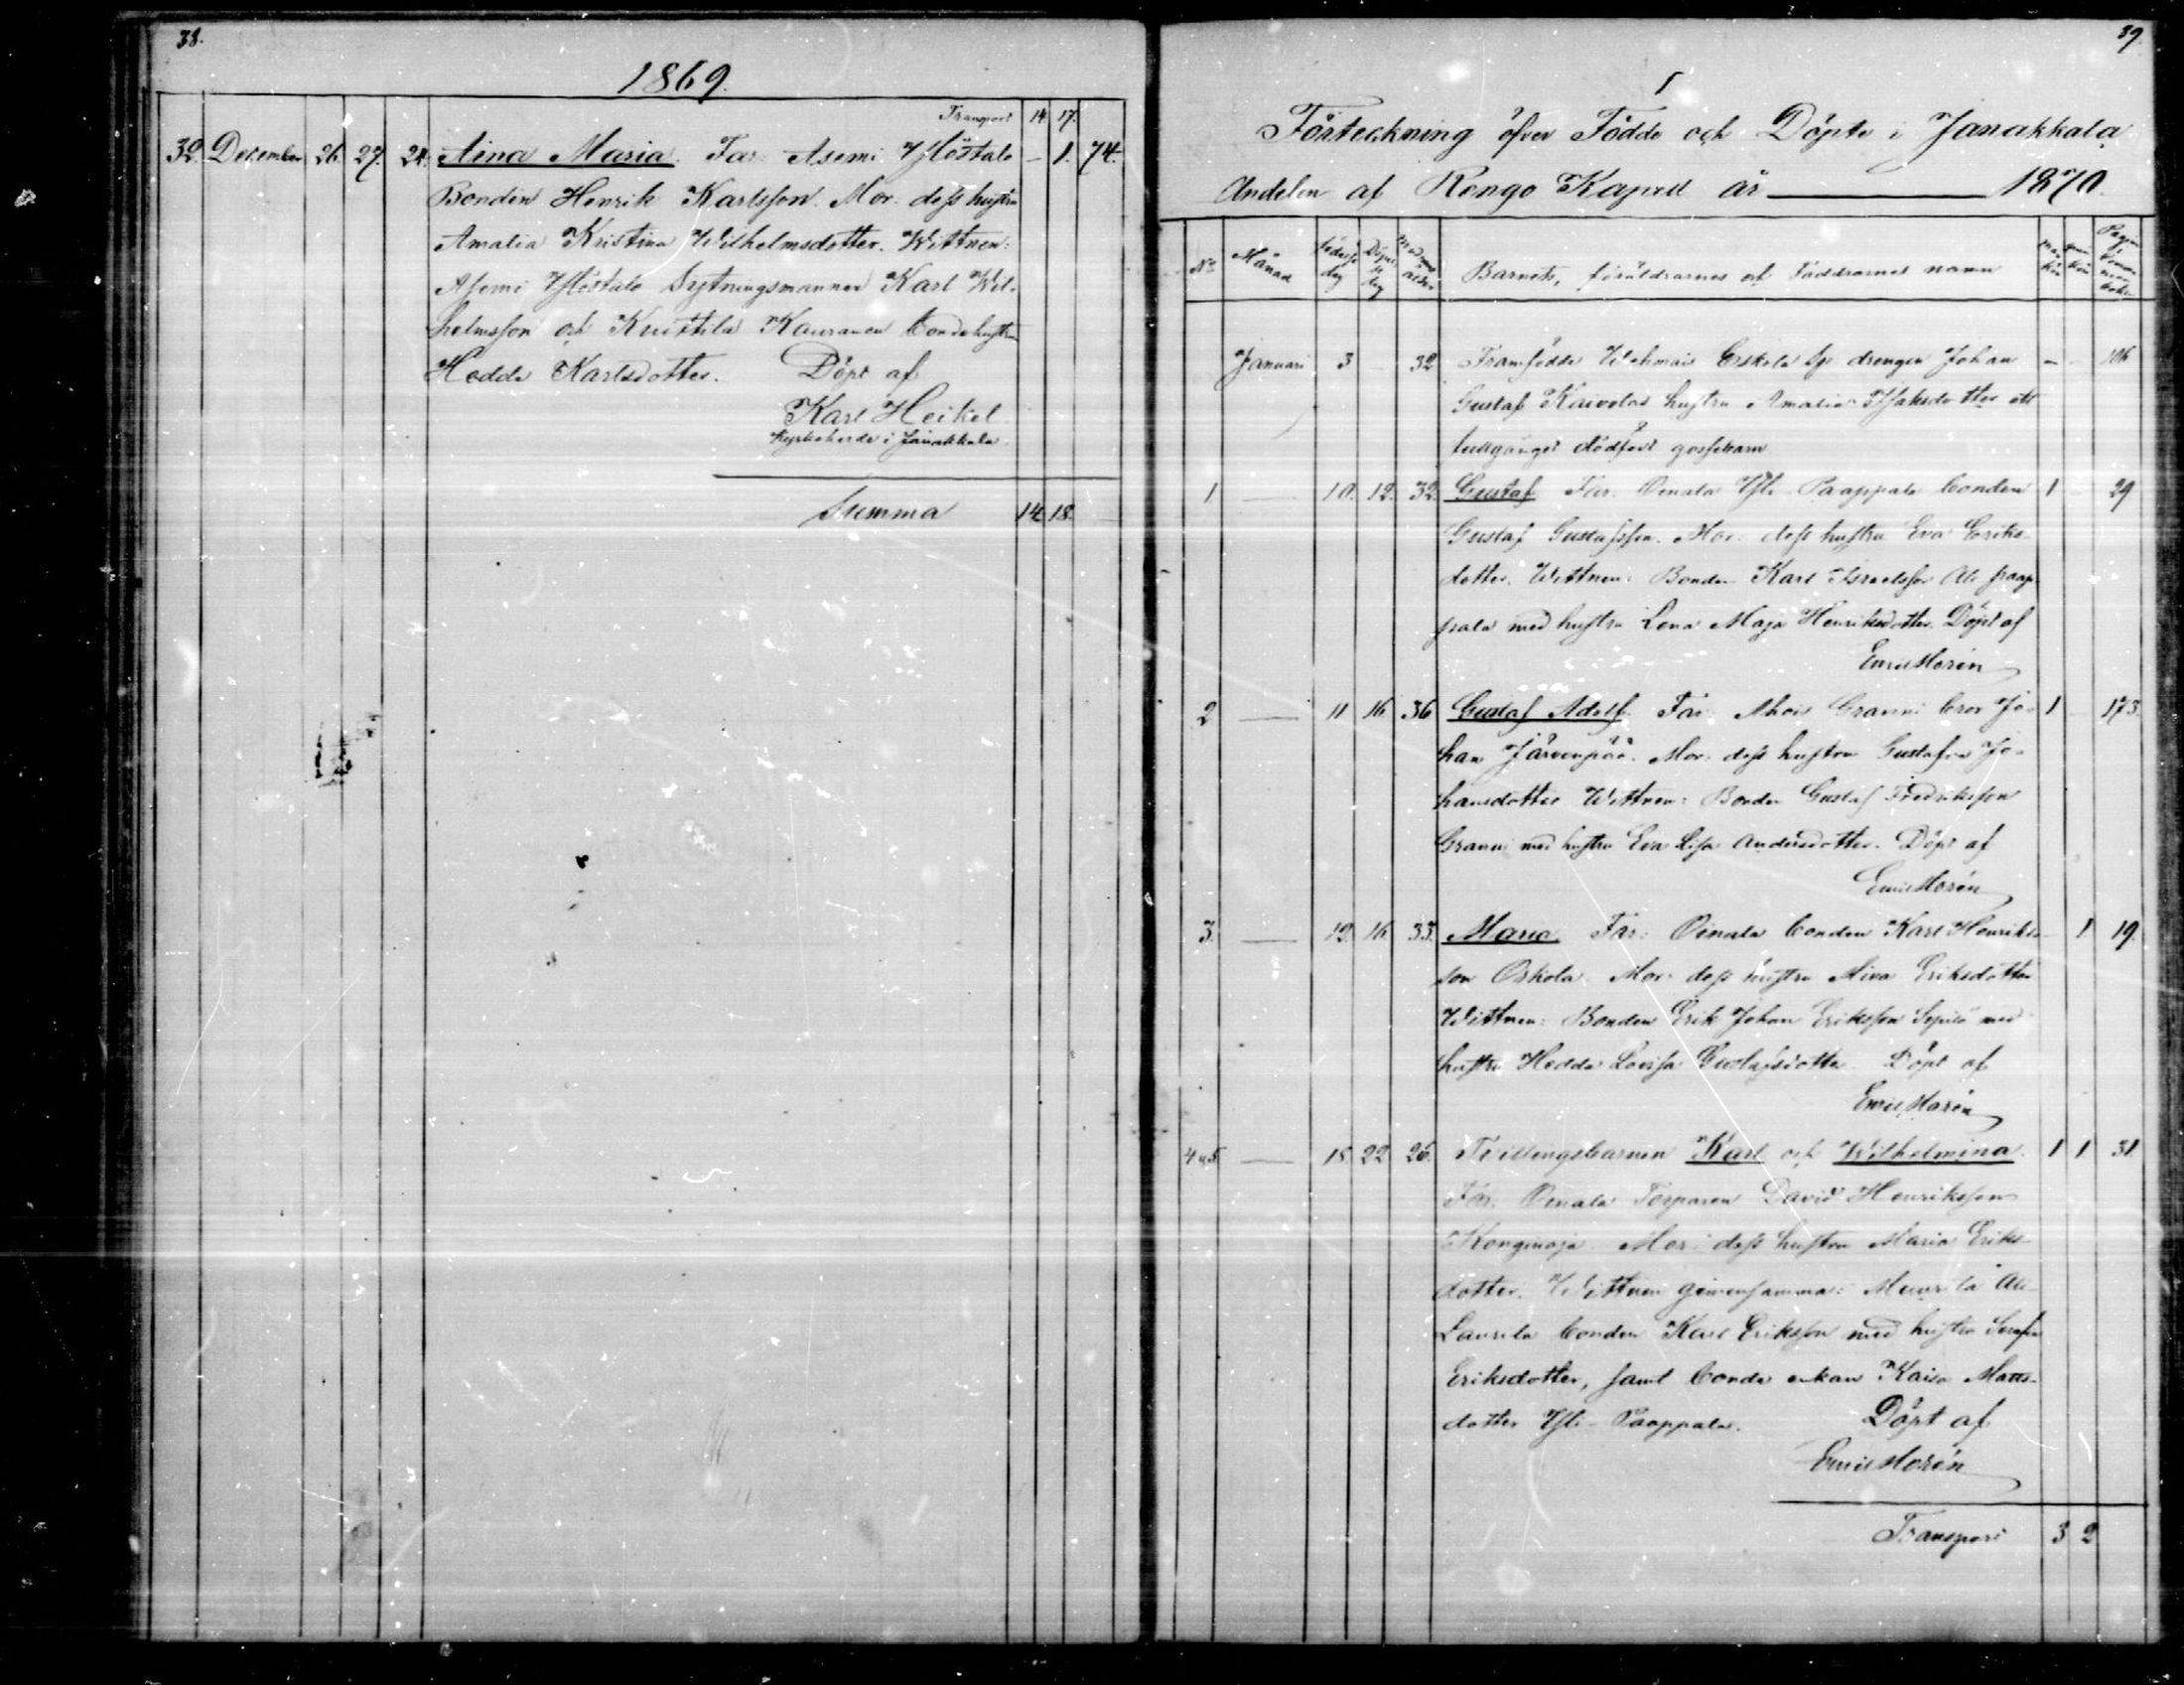 38.
1869.
Transport 14 17.
32. December 26. 27. 24. Aina Maria. Far: Asemi Yöstalo — 1. 74.
Bonden Henrik Karlsson. Mor: dess hustru
Amalia Kristina Wilhelmsdotter. Wittnen:
Asemi Yöstalo Sytningsmannen Karl Wil-
helmsson och Kuittila Kauranen bondehustrun
Hedda Karlsdotter. Döpt af
Karl Heikel
Kyrkoherde i Janakkala.
Summa 14 18.
39.
1
Förteckning öfver Födde och Döpte i Janakkala
Andelen af Rengo Kapell år 1870.
No Månad Födelse dag Döpelse dag Modrens ålder Barnets, föräldrarnes och Faddrarnes namn Man kön Qvin kön Pagina i Communionboken
Januari 3 32 Framfödde Wehmais Eskola drengen Johan — 106
Gustaf Kaivolas hustru Amalia Isaksdotter ett
fullgånget dödfödt gossebarn
1 — 10. 12. 32. Gustaf Far: Oinala Yli-Paappala bonden 1 29
Gustaf Gustafsson. Mor: dess hustru Eva Eriks-
dotter. Wittnen: Bonden Karl Israelsson Ali Paap-
pala med hustru Lena Maja Henriksdotter. Döpt af
Emil Morén
2 — 11 16 36 Gustaf Adolf. Far: Ahois Granni Jo- 1 173
han Järvenpää. Mor: dess hustru Gustafva Jo-
hansdotter Wittnen: Bonden Gustaf Fredriksson
Granni med hustru Eva Lisa Andersdotter. Döpt af
Emil Morén
3. — 12. 16. 33. Maria. Far: Oinala bonden Karl Henriks- 1 19.
son Oskola. Mor: dess hustru Miva Eriksdotter
Wittnen: Bonden Erik Johan Eriksson Seppilä med
hustru Hedda Lovisa Gustafsdotter. Döpt af
Emil Morén
4 o 5. — 18. 22 26. Tvillingsbarnen Karl och Wilhelmina. 1 1 31
Far: Oinala Torparen David Henriksson
Konginoja. Mor: dess hustru Maria Eriks-
dotter. Wittnen gemensamma: Muurila Ali-
Laurila bonden Karl Eriksson med hustru Serafia
Eriksdotter, samt bonde enkan Kaisa Matts-
dotter Yli-Paappala. Döpt af
Emil Morén
Transport 3 2